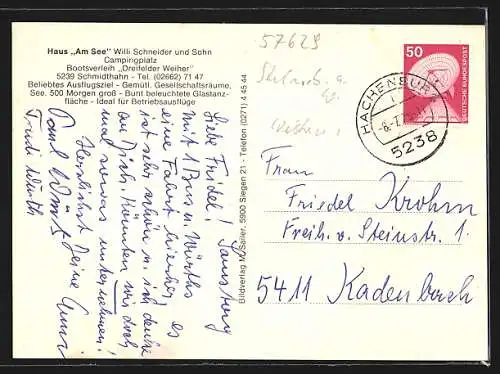 Haus „Am See" Willi Schneider und Sohn
Campingplatz
Bootsverleih „Dreifelder Weiher"
5239 Schmidthahn - Tel. (02662) 71 47
Beliebtes Ausflugsziel - Gemütl. Gesellschaftsräume,
See. 500 Morgen groß - Bunt beleuchtete Glastanz-
fläche - Ideal für Betriebsausflüge
Samstag
Liebe Friedel!
mit 1 Bus u. Wirths
eine Fahrt hierher, es
ist sehr schön u. ich denke
an Dich. Könnten wir doch
mal sowas unternehmen!
Herzlichst Deine
Bildverlag M. Seiler, 5900 Siegen 21 - Telefon (0271) 4 45 44
57629
50
DEUTSCHE BUNDESPOST
HACHENBURG
5238
Frau
Friedel Krohm
Freih. v. Steinstr. 1
5411 Kadenbach